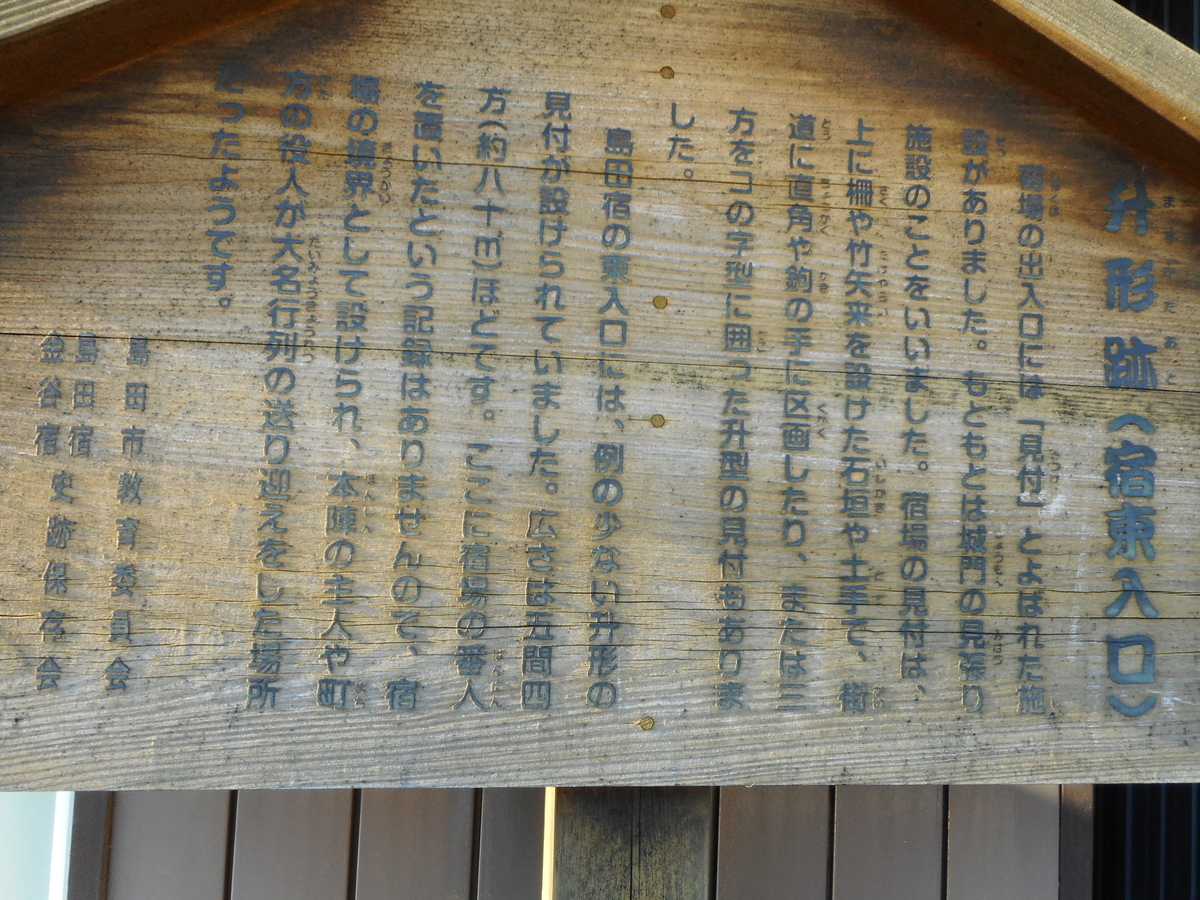 升形跡(宿東入口)
宿場の出入口には「見付」とよばれた施
設がありました。もともとは城門の見張り
施設のことをいいました。宿場の見付は、
上に柵や竹矢来を設けた石垣や土手で、街
道に直角や鉤の手に区画したり、または三
方をコの字型に囲った升型の見付もありま
した。
島田宿の東入口には、例の少ない升形の
見付が設けられていました。広さは五間四
方(約八十㎡)ほどです。ここに宿場の番人
を置いたという記録はありませんので、宿
場の境界として設けられ、本陣の主人や町
方の役人が大名行列の送り迎えをした場所
だったようです。
島田市教育委員会
島田宿
金谷宿 史跡保存会